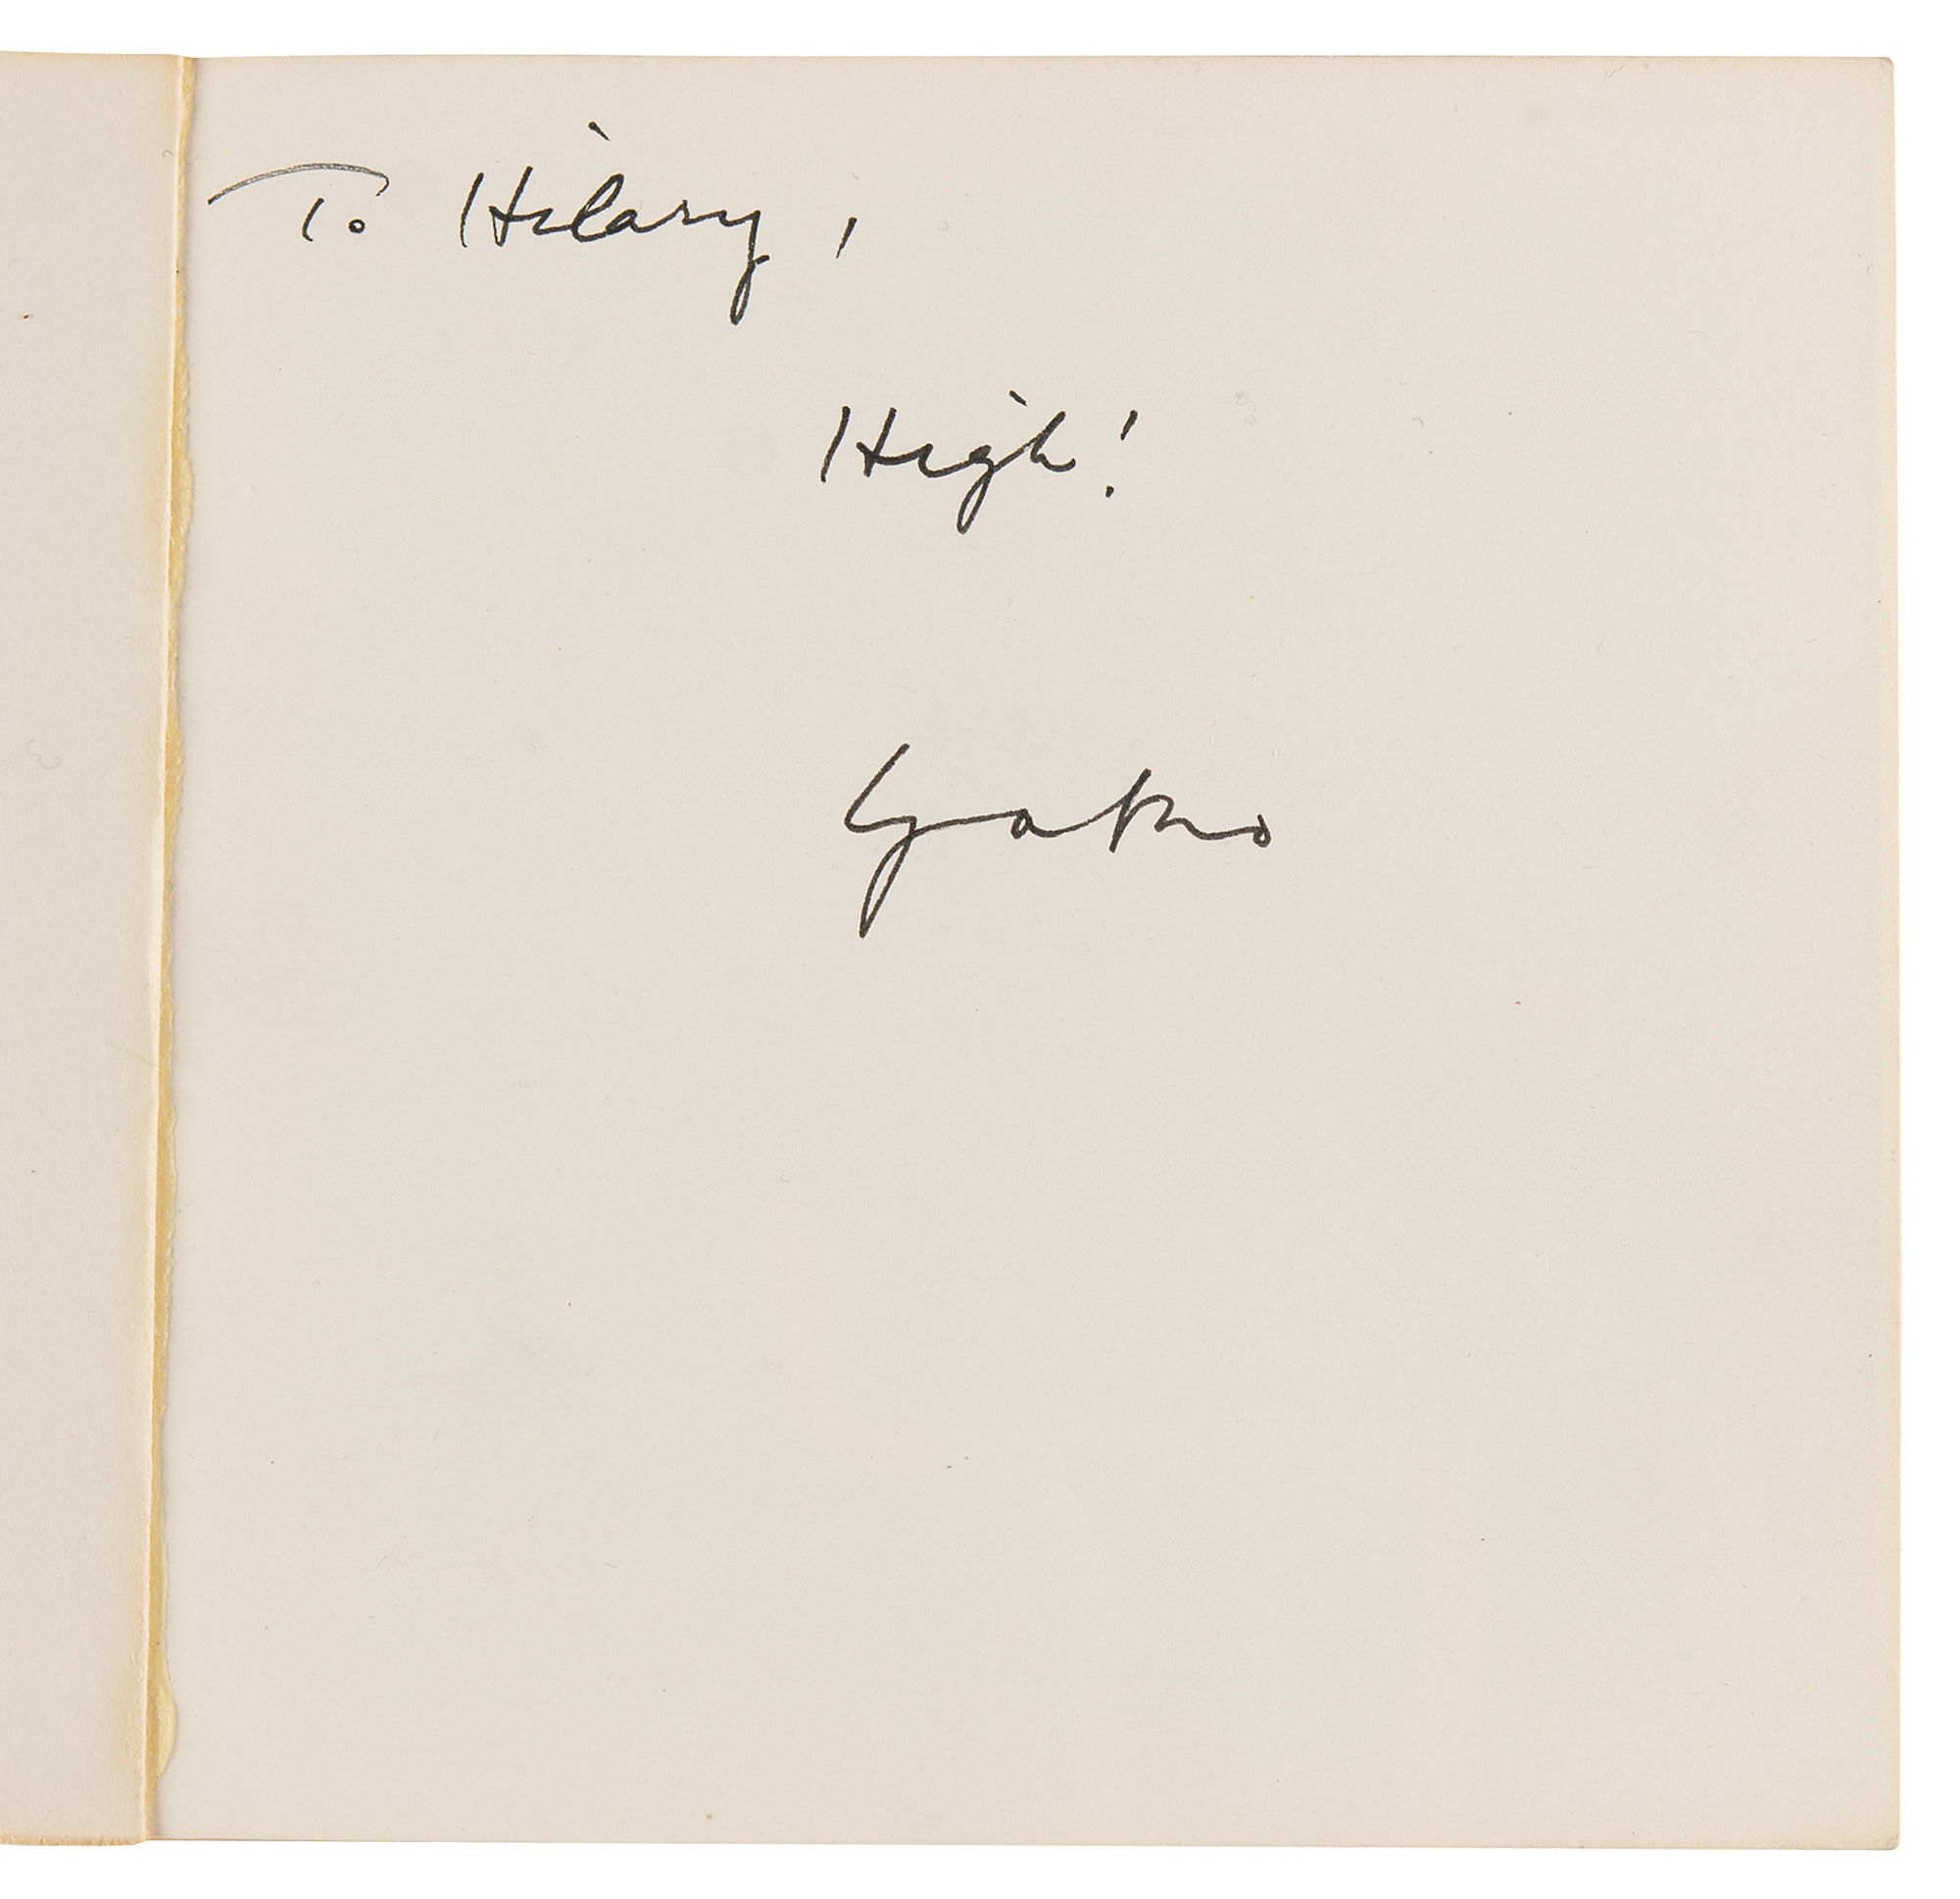 To Hilary,
High!
Yoko